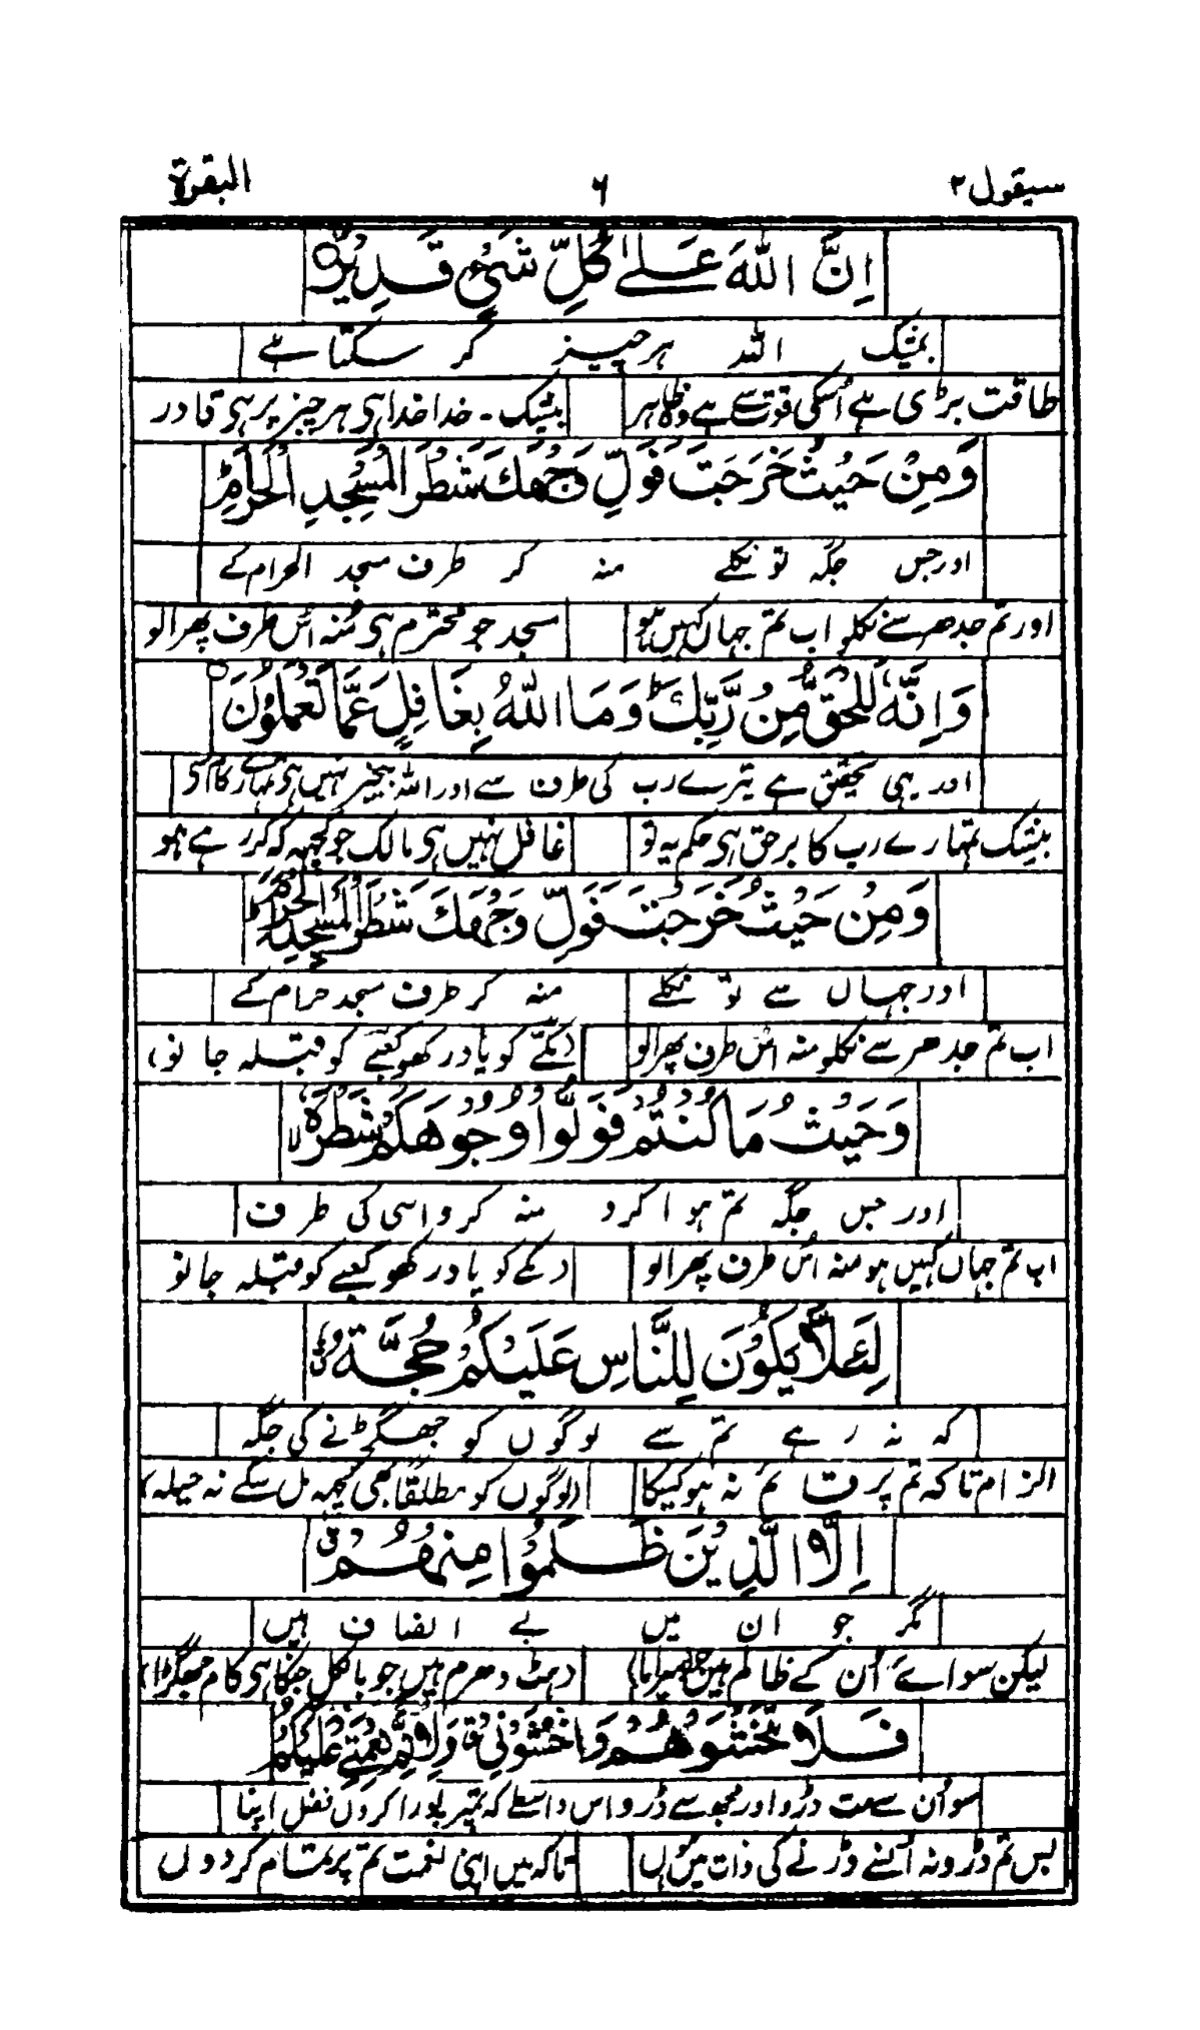 سیقول ۲ ۶ البقرة
اِنَّ اللّٰهَ عَلٰى كُلِّ شَيْءٍ قَدِيْرٌ
بیشک اللہ ہر چیز کر سکتا ہے
طاقت بڑی ہے اُسکی قوت ہے وظاہر بیشک ۔ خدا خدا ہی ہر چیز پر ہی قادر
وَمِنْ حَيْثُ خَرَجْتَ فَوَلِّ وَجْهَكَ شَطْرَ الْمَسْجِدِ الْحَرَامِ
اور جس جگہ تو نکلے منہ کر طرف مسجد الحرام کے
اور تم جدھر سے نکلو اب تم جہاں کہیں ہو مسجد جو محترم ہی مُنہ اُس طرف پھرا لو
وَاِنَّهٗ لَلْحَقُّ مِنْ رَّبِّكَ وَمَا اللّٰهُ بِغَافِلٍ عَمَّا تَعْمَلُوْنَ
اور یہی تحقیق ہے تیرے رب کی طرف سے اور اللہ بیخبر نہیں ہی تمہارے کام سی
بیشک تمہارے رب کا برحق ہی حکم یہ تو غافل نہیں ہی مالک جو کچھ کہ کر رہے ہو
وَمِنْ حَيْثُ خَرَجْتَ فَوَلِّ وَجْهَكَ شَطْرَ الْمَسْجِدِ الْحَرَامِ
اور جہاں سے تو نکلے منہ کر طرف مسجد حرام کے
اب تم جدھر سے نکلو منہ اُس طرف پھرا لو (مکے کو یاد رکھو کعبے کو قبلہ جانو)
وَحَيْثُ مَا كُنْتُمْ فَوَلُّوْا وُجُوْهَكُمْ شَطْرَهٗ
اور جس جگہ تم ہوا کرو منہ کرو اسی کی طرف
اب تم جہاں کہیں ہو منہ اُس طرف پھرا لو (مکے کو یاد رکھو کعبے کو قبلہ جانو
لِئَلَّا يَكُوْنَ لِلنَّاسِ عَلَيْكُمْ حُجَّةٌ
کہ نہ رہے تم سے لوگوں کو جھگڑنے کی جگہ
الزام تاکہ تم پر قائم نہ ہو کسیکا (لوگوں کو مطلقًا بھی کچھ مل سکے نہ حیلہ)
اِلَّا الَّذِيْنَ ظَلَمُوْا مِنْهُمْ
مگر جو ان میں بے انصاف ہیں
لیکن سوائے اُن کے ظالم ہیں (ہٹ دھرم ہیں جو بالکل جنکا ہی کام جھگڑا)
فَلَا تَخْشَوْهُمْ وَاخْشَوْنِيْ وَلِاُتِمَّ نِعْمَتِيْ عَلَيْكُمْ
سو اُن سے مت ڈرو اور مجھ سے ڈرو اس واسطے کہ تمپر پورا کروں فضل اپنا
بس تم ڈرو نہ اُنسے ڈرنے کی ذات میں ہوں تاکہ میں اپنی نعمت تم پر تمام کر دوں